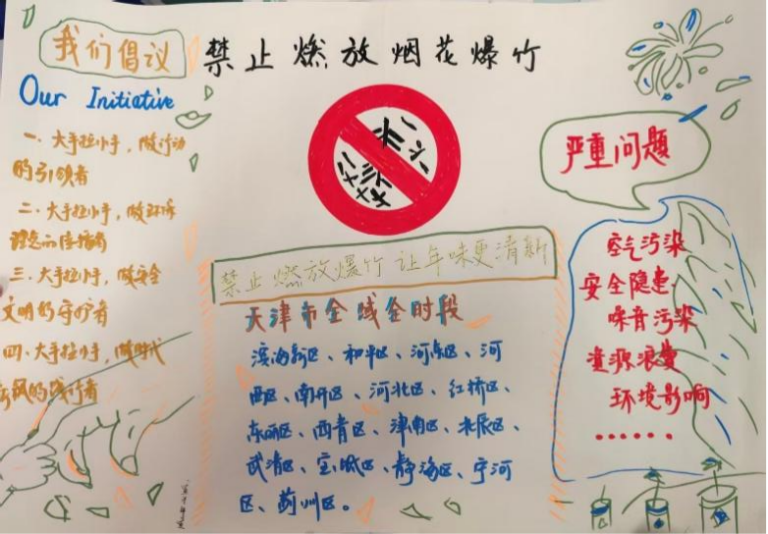 我们倡议
Our Initiative
一.大手拉小手,做行动
的引领者
二.大手拉小手,做环保
理念的传播者
三.大手拉小手,做安全
文明的守护者
四.大手拉小手,做时代
新风的践行者
禁止燃放烟花爆竹
禁止燃放爆竹 让年味更清新
天津市全域全时段
滨海新区、和平区、河东区、河
西区、南开区、河北区、红桥区、
东丽区、西青区、津南区、北辰区、
武清区、宝坻区、静海区、宁河
区、蓟州区。
严重问题
空气污染
安全隐患
噪音污染
资源浪费
环境影响
......